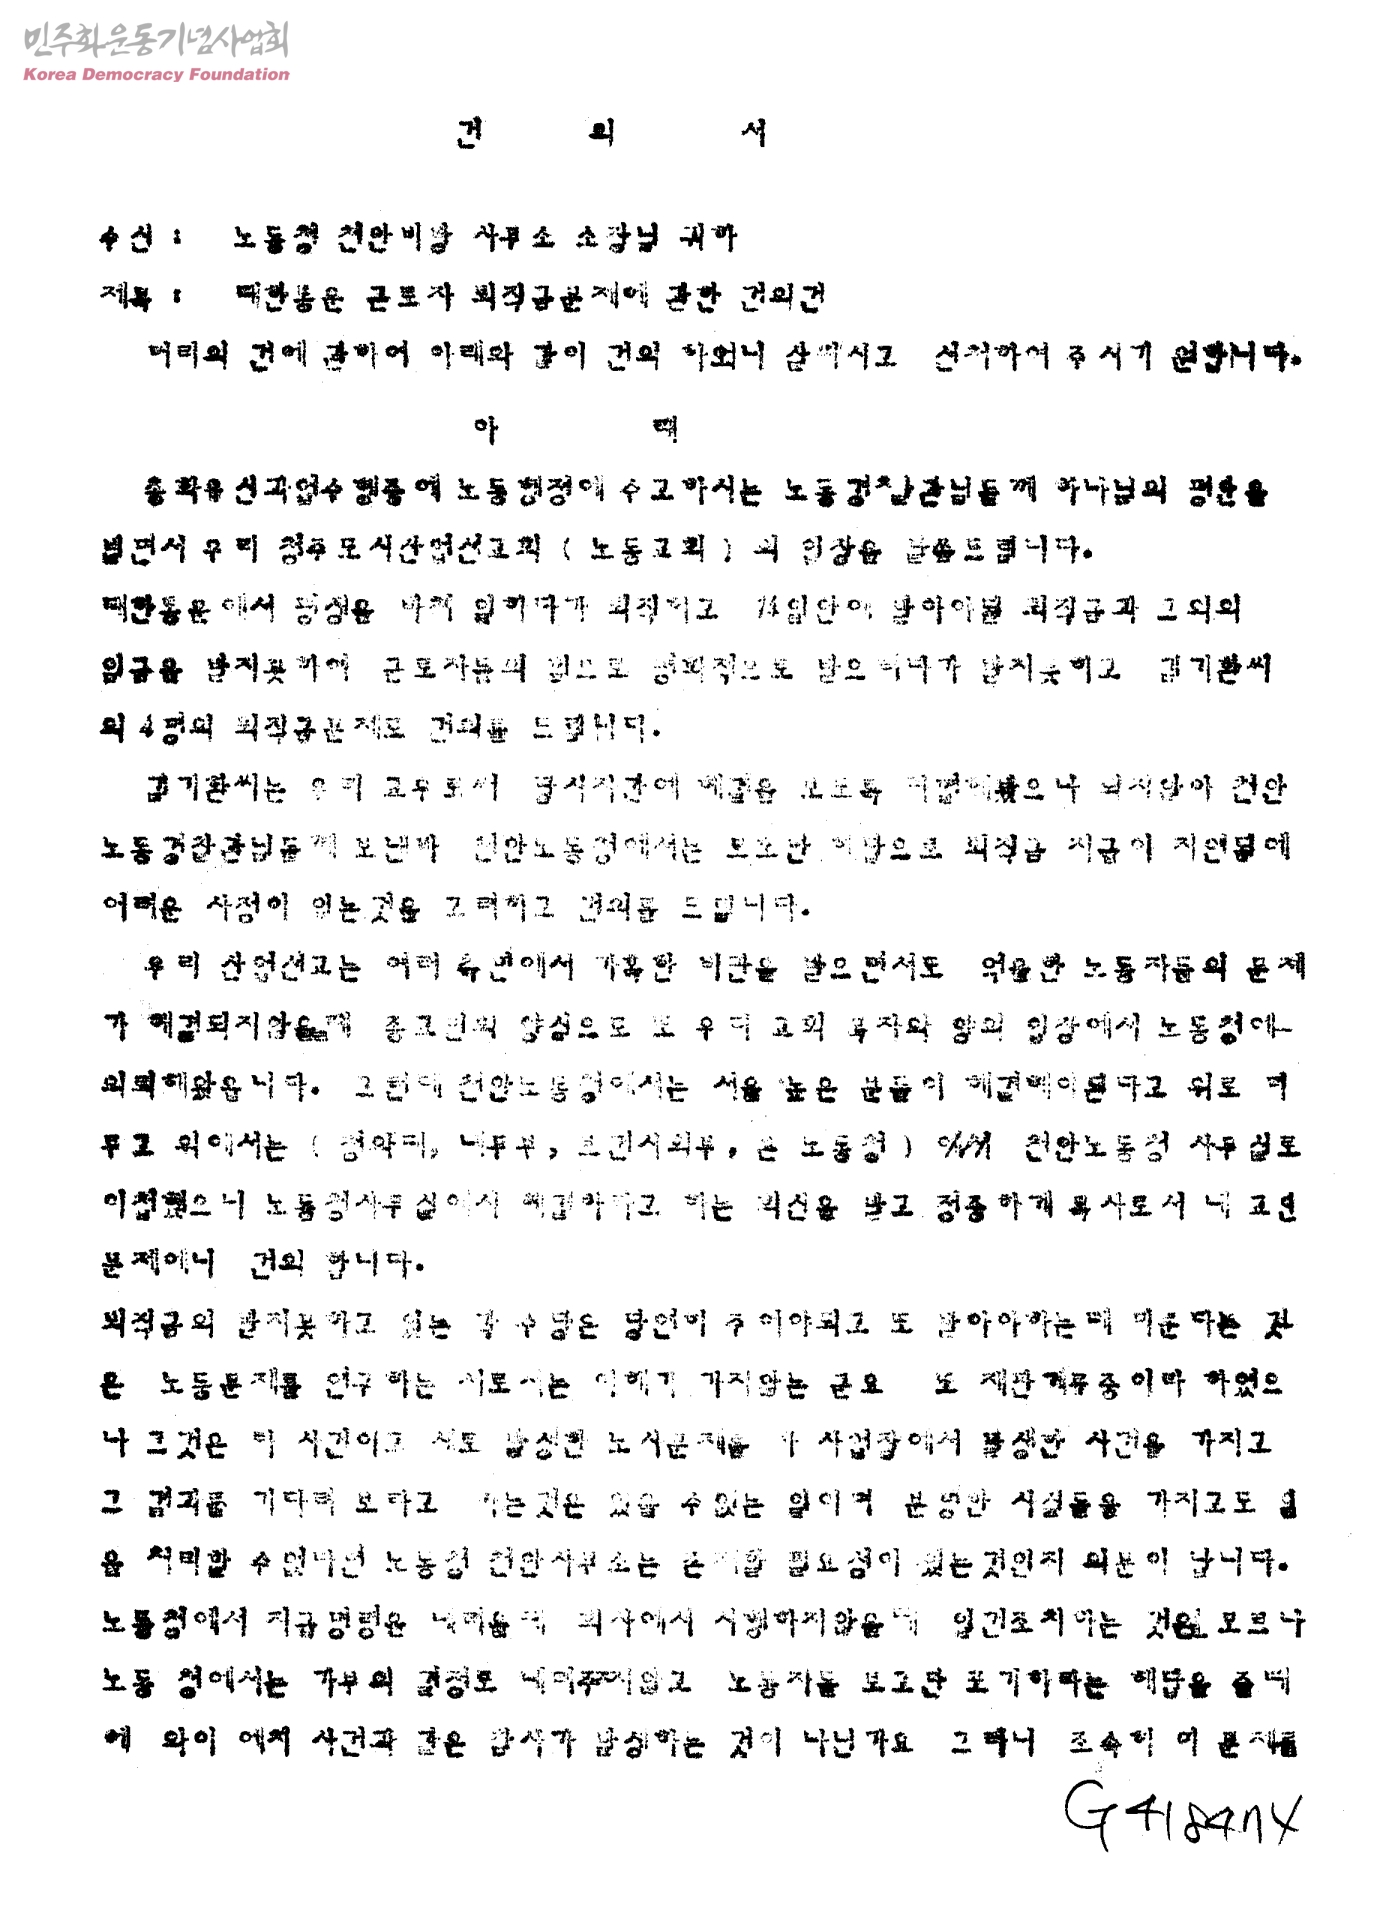 민주화운동기념사업회
Korea Democracy Foundation
건 의 서
수신 : 노동청 천안지방 사무소 소장님 귀하
제목 : 대한통운 근로자 퇴직금문제에 관한 건의건
머리의 건에 관하여 아래와 같이 건의 하오니 살피시고 선처하여 주시기 원합니다.
아 래
총화유신과업수행중에 노동행정에 수고하시는 노동경찰관님들께 하나님의 평안을
빌면서 우리 청주도시산업선교회 ( 노동교회 ) 의 입장을 말씀드립니다.
대한통운에서 땀을 바쳐 일하다가 퇴직하고 14일안에 받아야될 퇴직금과 그외의
임금을 받지못하여 근로자들의 힘으로 평화적으로 받으려다가 받지못하고 김기환씨
외 4명의 퇴직금문제로 건의를 드립니다.
김기환씨는 우리 교우로서 당시기관에 해결을 보도록 하였으나 되지않아 천안
노동경찰관님들께 보낸바 천안노동청에서는 모호한 해답으로 퇴직금 지급이 지연됨에
어려운 사정이 있는것을 고려하고 건의를 드립니다.
우리 산업선교는 여러 측면에서 가혹한 비판을 받으면서도 억울한 노동자들의 문제
가 해결되지않을때 종교인의 양심으로 또 우리 교회 목자와 양의 입장에서 노동청에
의뢰해왔읍니다. 그런데 천안노동청에서는 서울 높은 분들이 해결해야된다고 위로 미
루고 위에서는 ( 청와대, 내무부, 보건사회부, 본 노동청 ) 에서 천안노동청 사무실로
이첩했으니 노동청사무실에서 해결하라고 하는 회신을 받고 정중하게 목사로서 내 교인
문제이니 건의 합니다.
퇴직금의 받지못하고 있는 각 수당은 당연히 주어야되고 또 받아야하는데 미룬다는 것
은 노동문제를 연구하는 저로서는 이해가 가지않는군요 또 재판계류중이라 하였으
나 그것은 타 사건이고 서로 발생한 노사문제를 사업장에서 발생한 사건을 가지고
그 결과를 기다려 보라고 하는것은 있을 수없는 일이며 분명한 사실들을 가지고도 일
을 처리할 수없다면 노동청 천안사무소는 존재할 필요성이 있는것인지 의문이 납니다.
노동청에서 지급명령은 내려을때 회사에서 시행하지않을때 입건조치하는 것은 모르나
노동 청에서는 가부의 결정도 내려주지않고 노동자들 보고만 포기하라는 해답을 줄때
에 와이 에치 사건과 같은 참사가 발생하는 것이 아닌가요 그러니 조속히 이 문제를
G4184M4